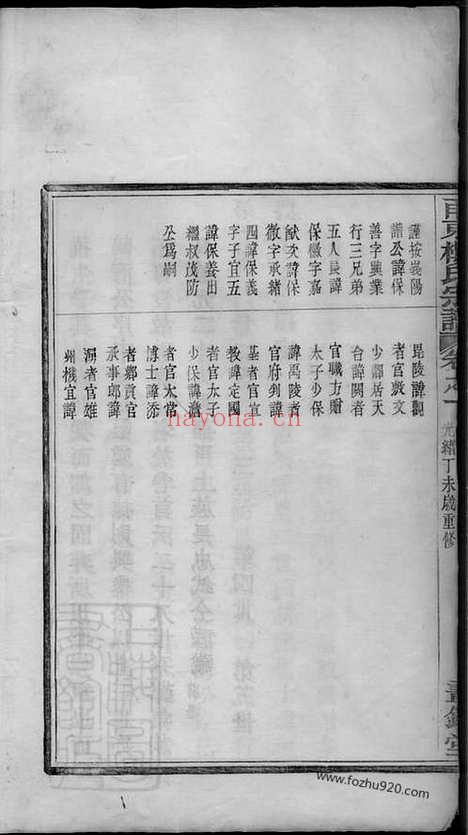 宗譜
光緒丁未歲重修
晝錦堂
謹按義陽
諧公諱保
善字與業
行三兄弟
五人長諱
保徽字嘉
猷次諱保
徵字承緒
四諱保義
字子宜五
諱保養出
繼叔茂防
公為嗣
毘陵諱觀
者官敷文
少諱居天
台諱閱者
官職方贈
太子少保
諱禹陵者
官府判諱
基者官宣
教諱定國
者官太子
少保諱滋
者官太常
博士諱添
者鄉貢官
承事郎諱
淵者官雄
州機宜諱
hayona.cn
www.fozhu920.com